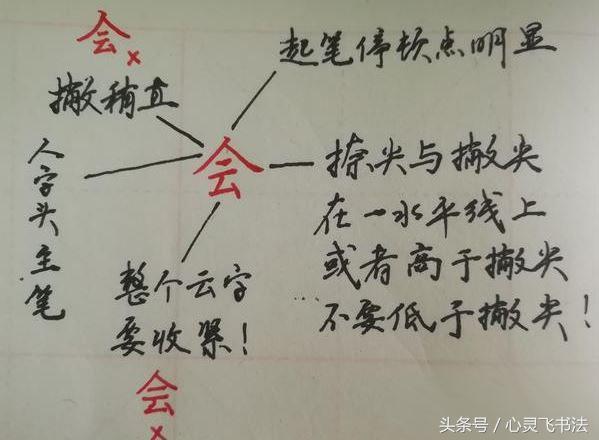 会×
起笔停顿点明显
撇稍直
会
人字头主笔
捺尖与撇尖
在一水平线上
或者高于撇尖
不要低于撇尖！
整个云字
要收紧！
会×
头条号／心灵飞书法